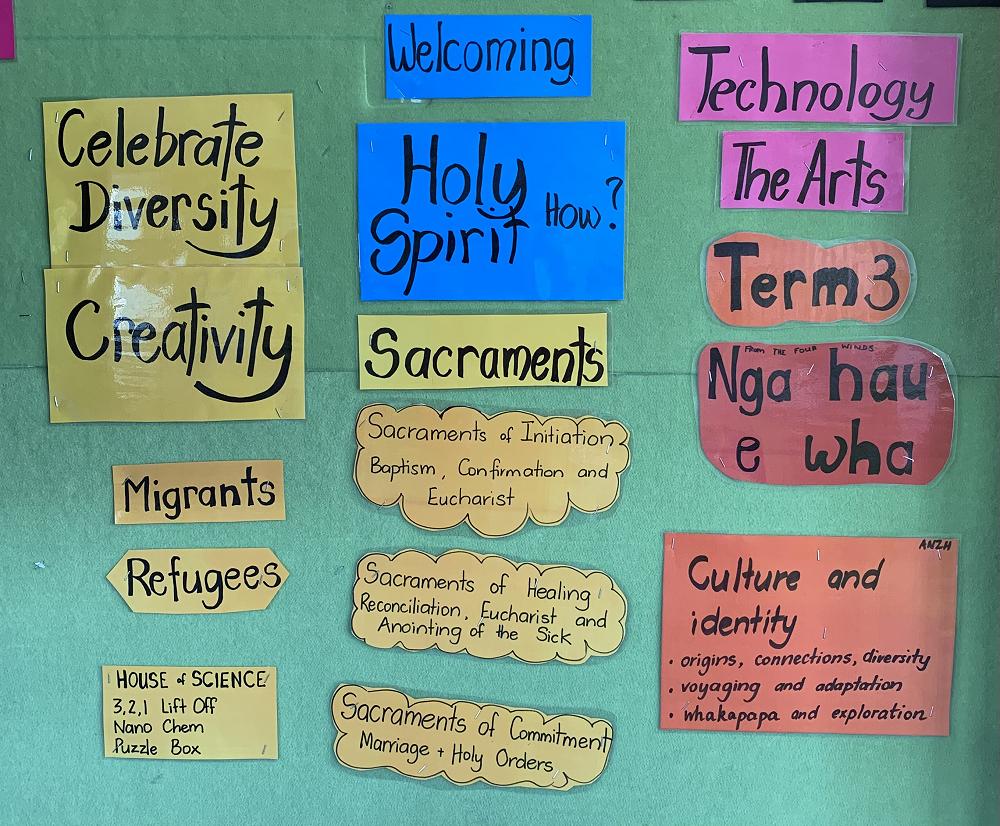 Celebrate
Diversity
Creativity
Migrants
Refugees
HOUSE of SCIENCE
3,2,1 Lift Off
Nano Chem
Puzzle Box
Welcoming
Holy
Spirit How?
Sacraments
Sacraments of Initiation
Baptism, Confirmation and
Eucharist
Sacraments of Healing
Reconciliation, Eucharist and
Anointing of the Sick
Sacraments of Commitment
Marriage + Holy Orders
Technology
The Arts
Term 3
FROM THE FOUR WINDS
Nga hau
e wha
ANZH
Culture and
identity
• origins, connections, diversity
• voyaging and adaptation
• whakapapa and exploration